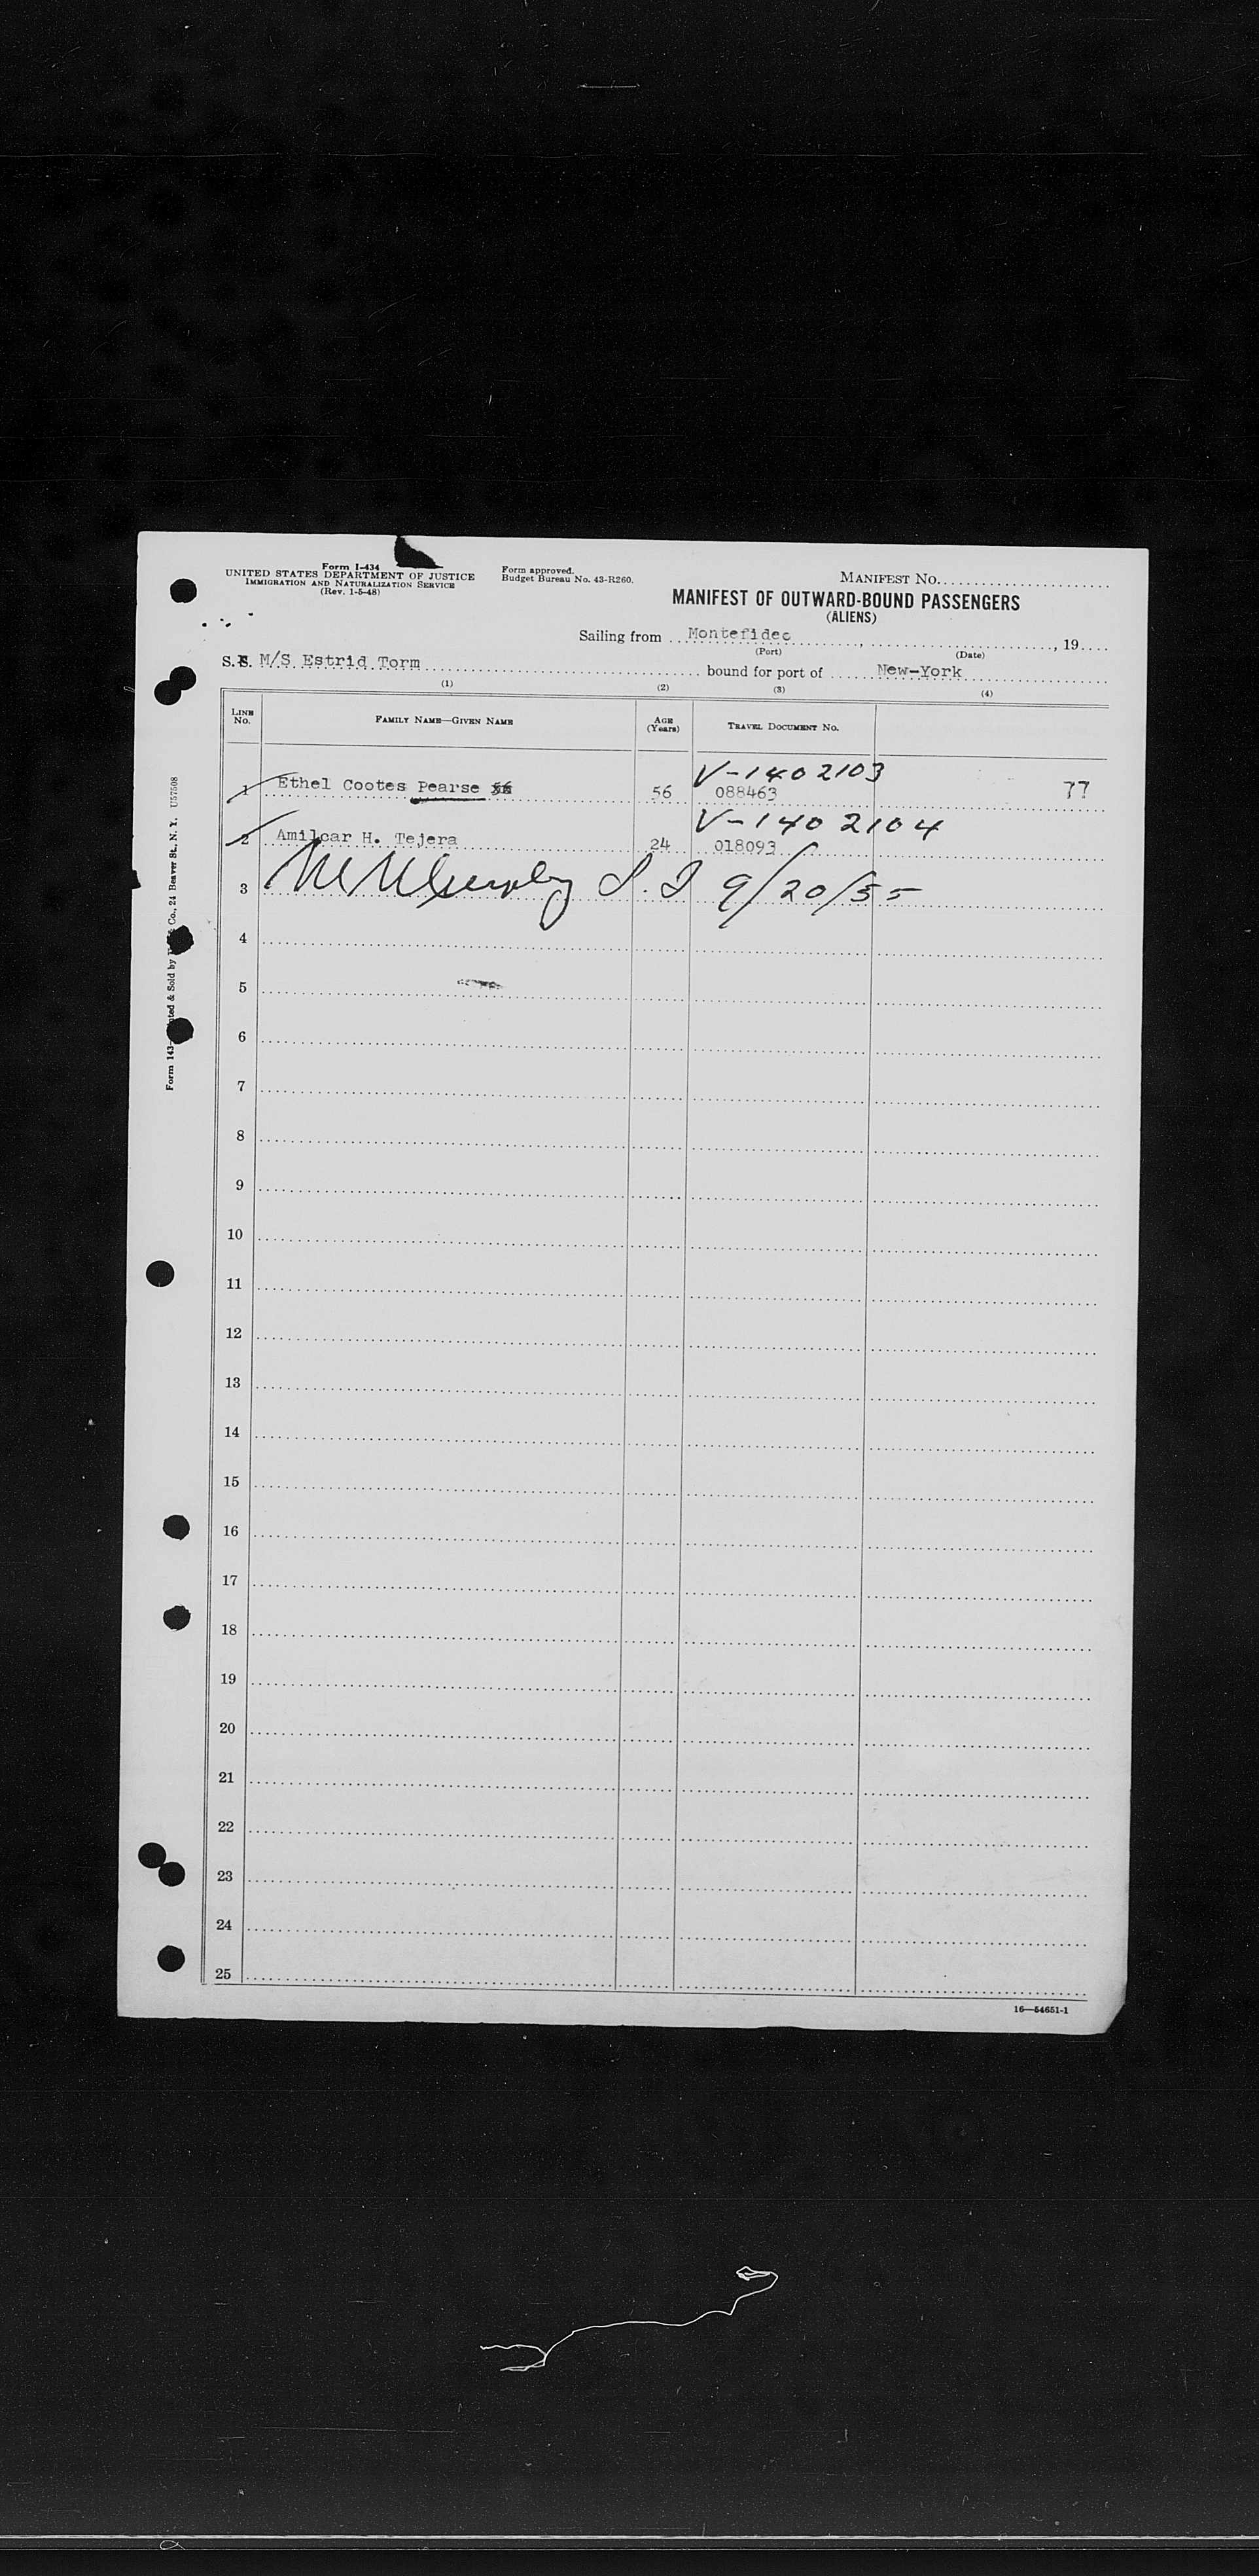 Form I-434
UNITED STATES DEPARTMENT OF JUSTICE
IMMIGRATION AND NATURALIZATION SERVICE
(Rev. 1-5-48)
Form approved.
Budget Bureau No. 43-R260.
MANIFEST No.
MANIFEST OF OUTWARD-BOUND PASSENGERS
(ALIENS)
Sailing from Montefideo, , 19
(Port) (Date)
S.S. M/S Estrid Torm bound for port of New-York
(1) (2) (3) (4)
LINE No. FAMILY NAME—GIVEN NAME AGE (Years) TRAVEL DOCUMENT No.
V-1402103
1 Ethel Cootes Pearse 56 088463 77
V-1402104
2 Amilcar H. Tejera 24 018093
3 9/20/55
4
5
6
7
8
9
10
11
12
13
14
15
16
17
18
19
20
21
22
23
24
25
16—54651-1
Form 143 Printed & Sold by Co., 24 Beaver St., N. Y. U57508